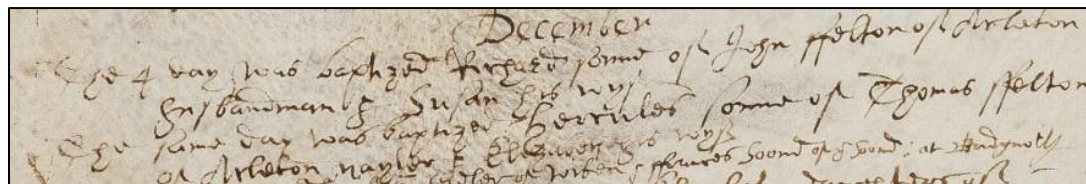 December
The 4 day was baptized Richard sonne of John ffelton of Arleton
husbandman & Susan his wyf
The same day was baptized Hercules sonne of Thomas ffelton
of Arleton nayler & Elizabeth his wyf
of ffrances at